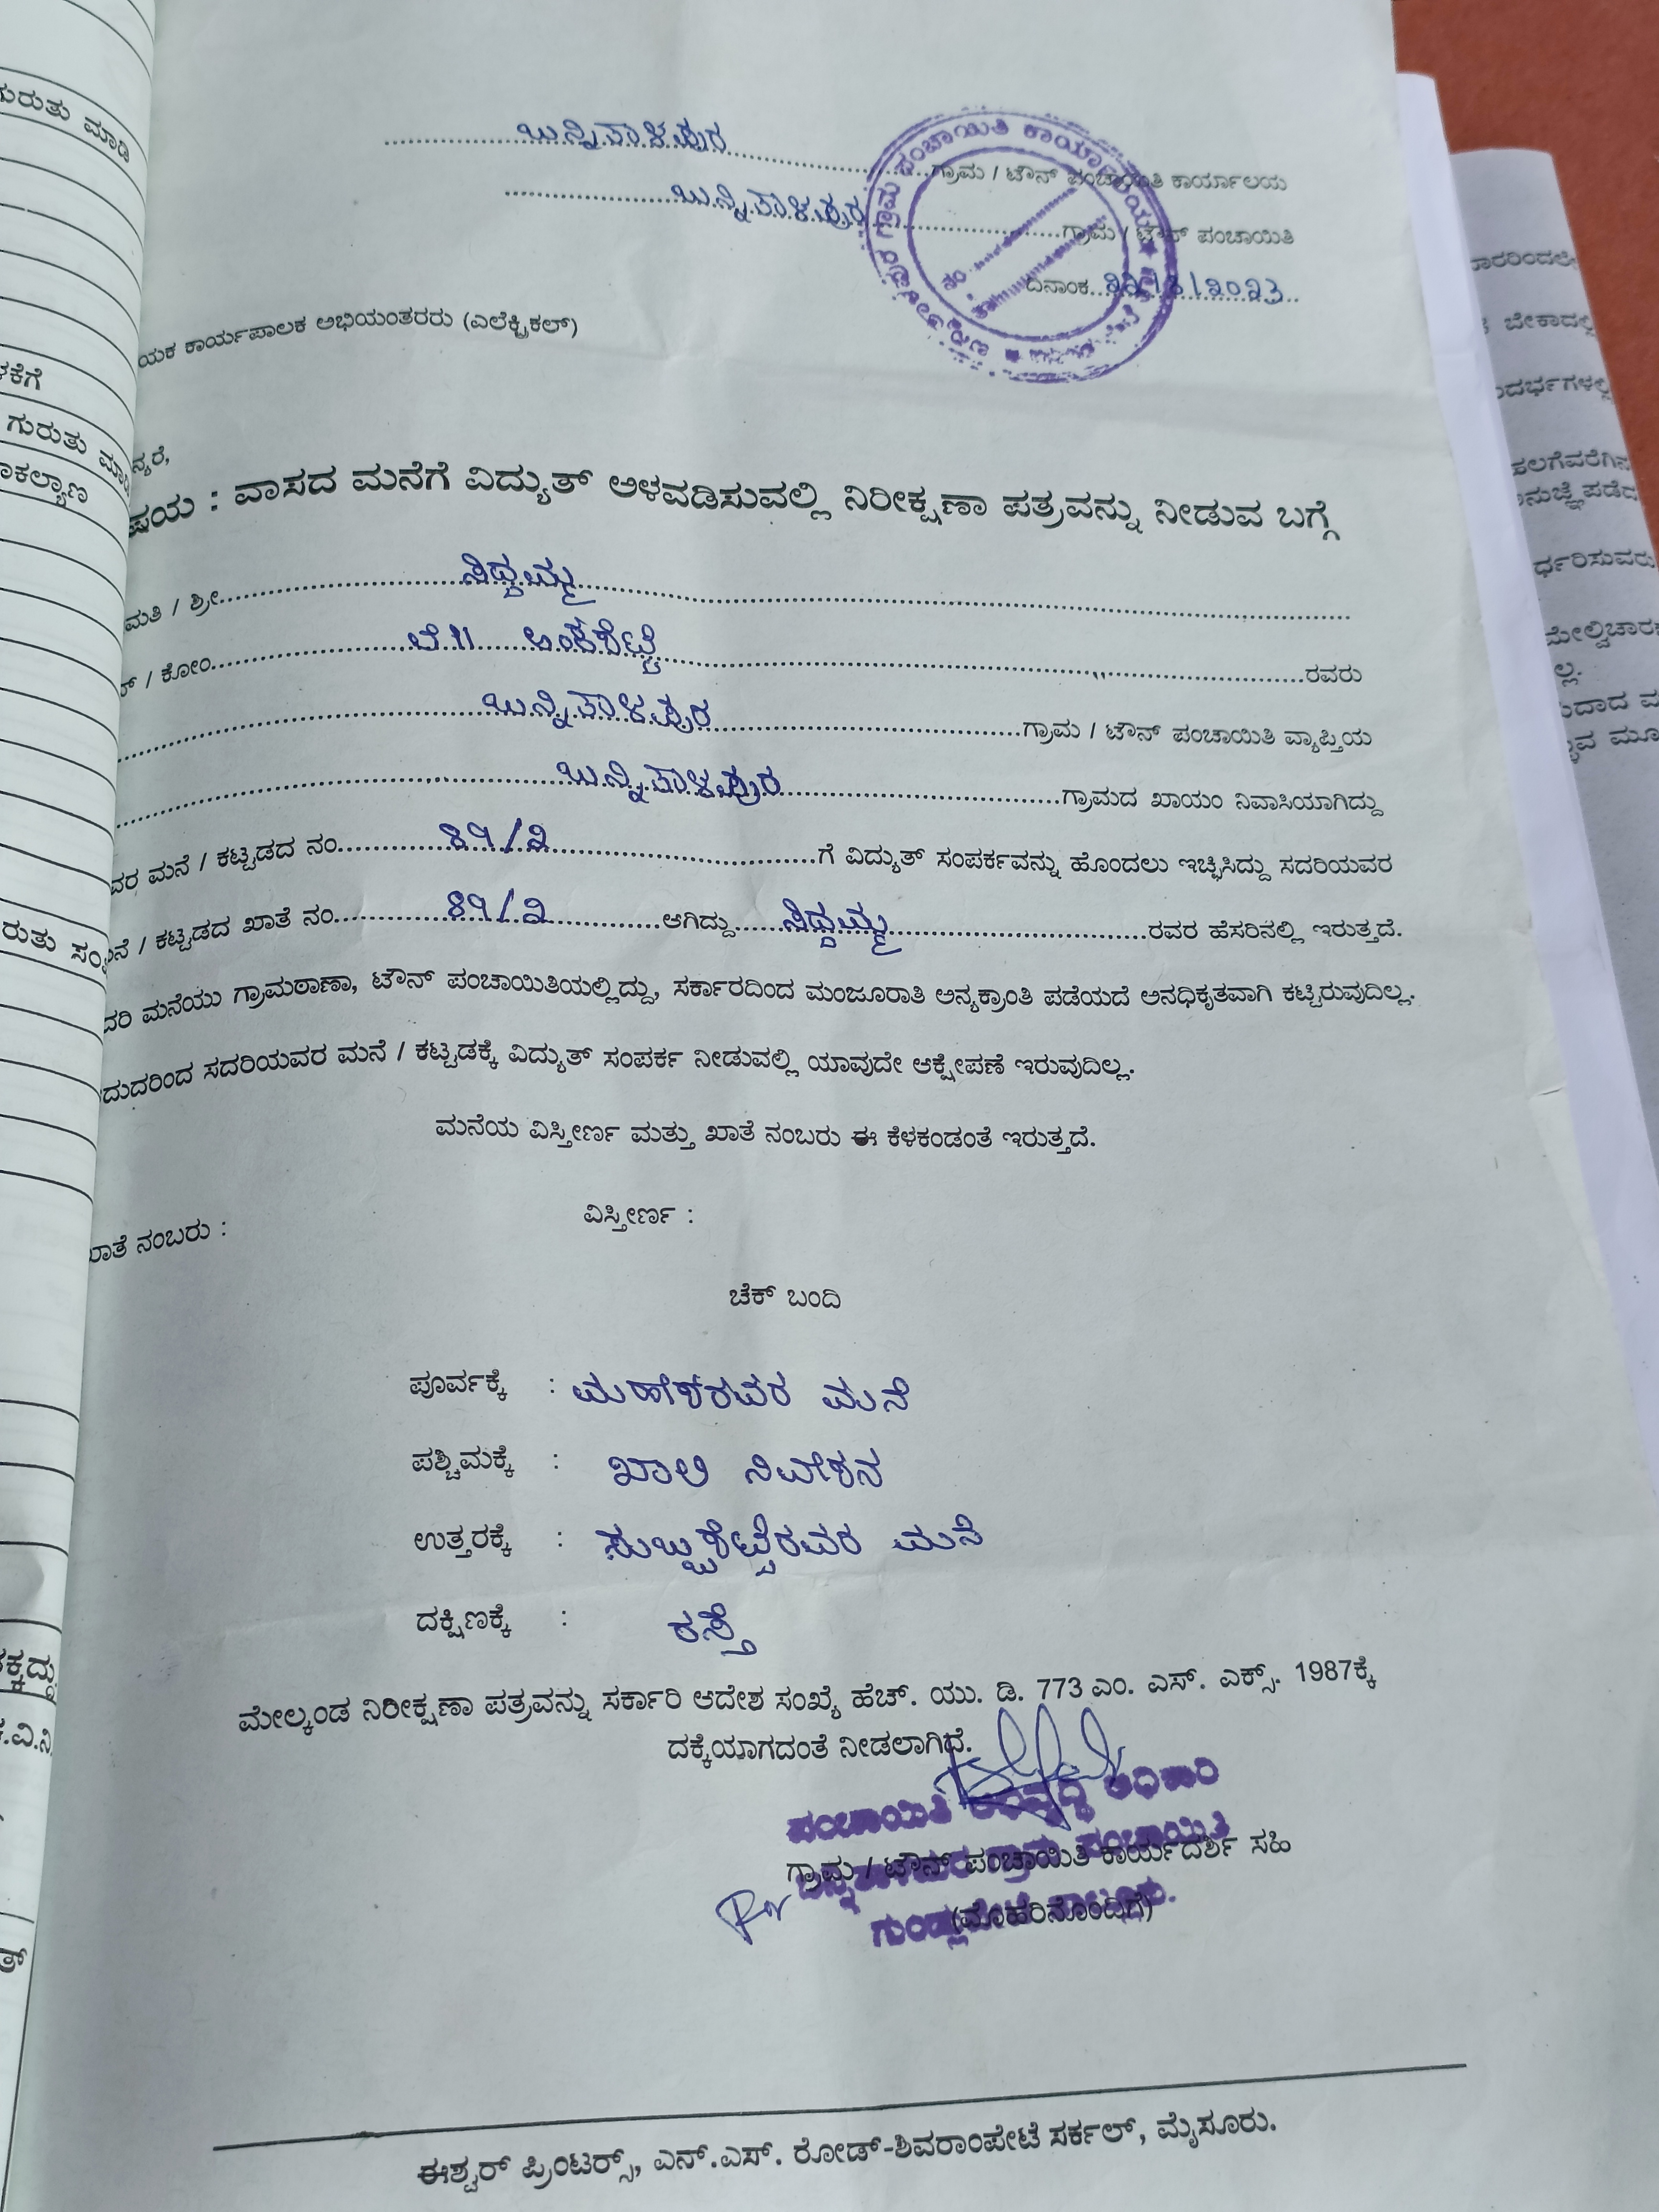 ಬನ್ನಿತಾಳಪುರ ಗ್ರಾಮ / ಟೌನ್ ಪಂಚಾಯಿತಿ ಕಾರ್ಯಾಲಯ
ಬನ್ನಿತಾಳಪುರ ಗ್ರಾಮ / ಟೌನ್ ಪಂಚಾಯಿತಿ
ದಿನಾಂಕ
ಯಕ ಕಾರ್ಯಪಾಲಕ ಅಭಿಯಂತರರು (ಎಲೆಕ್ಟ್ರಿಕಲ್)
ನ್ಯರೆ,
ಷಯ : ವಾಸದ ಮನೆಗೆ ವಿದ್ಯುತ್ ಅಳವಡಿಸುವಲ್ಲಿ ನಿರೀಕ್ಷಣಾ ಪತ್ರವನ್ನು ನೀಡುವ ಬಗ್ಗೆ
ಮತಿ / ಶ್ರೀ ಸಿದ್ದಮ್ಮ
ರ್ / ಕೋಂ ಲೇ॥ ಅಂಕಶೆಟ್ಟಿ ರವರು
ಬನ್ನಿತಾಳಪುರ ಗ್ರಾಮ / ಟೌನ್ ಪಂಚಾಯಿತಿ ವ್ಯಾಪ್ತಿಯ
ಬನ್ನಿತಾಳಪುರ ಗ್ರಾಮದ ಖಾಯಂ ನಿವಾಸಿಯಾಗಿದ್ದು
ವರ ಮನೆ / ಕಟ್ಟಡದ ನಂ ೪೧/೨ ಗೆ ವಿದ್ಯುತ್ ಸಂಪರ್ಕವನ್ನು ಹೊಂದಲು ಇಚ್ಛಿಸಿದ್ದು ಸದರಿಯವರ
ನೆ / ಕಟ್ಟಡದ ಖಾತೆ ನಂ ೪೧/೨ ಆಗಿದ್ದು ಸಿದ್ದಮ್ಮ ರವರ ಹೆಸರಿನಲ್ಲಿ ಇರುತ್ತದೆ.
ದರಿ ಮನೆಯು ಗ್ರಾಮಠಾಣಾ, ಟೌನ್ ಪಂಚಾಯಿತಿಯಲ್ಲಿದ್ದು, ಸರ್ಕಾರದಿಂದ ಮಂಜೂರಾತಿ ಅನ್ಯಕ್ರಾಂತಿ ಪಡೆಯದೆ ಅನಧಿಕೃತವಾಗಿ ಕಟ್ಟಿರುವುದಿಲ್ಲ.
ದುದರಿಂದ ಸದರಿಯವರ ಮನೆ / ಕಟ್ಟಡಕ್ಕೆ ವಿದ್ಯುತ್ ಸಂಪರ್ಕ ನೀಡುವಲ್ಲಿ ಯಾವುದೇ ಆಕ್ಷೇಪಣೆ ಇರುವುದಿಲ್ಲ.
ಮನೆಯ ವಿಸ್ತೀರ್ಣ ಮತ್ತು ಖಾತೆ ನಂಬರು ಈ ಕೆಳಕಂಡಂತೆ ಇರುತ್ತದೆ.
ಖಾತೆ ನಂಬರು : ವಿಸ್ತೀರ್ಣ :
ಚೆಕ್ ಬಂದಿ
ಪೂರ್ವಕ್ಕೆ : ಮಹೇಶರವರ ಮನೆ
ಪಶ್ಚಿಮಕ್ಕೆ : ಖಾಲಿ ನಿವೇಶನ
ಉತ್ತರಕ್ಕೆ : ಸುಬ್ಬಶೆಟ್ಟಿರವರ ಮನೆ
ದಕ್ಷಿಣಕ್ಕೆ : ರಸ್ತೆ
ಮೇಲ್ಕಂಡ ನಿರೀಕ್ಷಣಾ ಪತ್ರವನ್ನು ಸರ್ಕಾರಿ ಆದೇಶ ಸಂಖ್ಯೆ ಹೆಚ್. ಯು. ಡಿ. 773 ಎಂ. ಎಸ್. ಎಕ್ಸ್. 1987ಕ್ಕೆ
ದಕ್ಕೆಯಾಗದಂತೆ ನೀಡಲಾಗಿದೆ.
ಪಂಚಾಯಿತಿ ಅಭಿವೃದ್ಧಿ ಅಧಿಕಾರಿ
ಗ್ರಾಮ / ಟೌನ್ ಪಂಚಾಯಿತಿ ಕಾರ್ಯದರ್ಶಿ ಸಹಿ
(ಮೊಹರಿನೊಂದಿಗೆ)
ಈಶ್ವರ್ ಪ್ರಿಂಟರ್ಸ್, ಎನ್.ಎಸ್. ರೋಡ್-ಶಿವರಾಂಪೇಟೆ ಸರ್ಕಲ್, ಮೈಸೂರು.